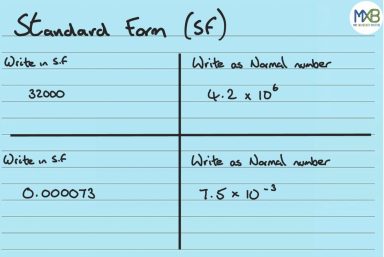 Standard Form (SF)
MXB
Write in S.f
Write as Normal number
32000
4.2 x 10⁶
Write in S.f
Write as Normal number
0.000073
7.5 x 10⁻³